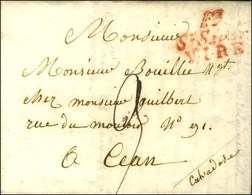 Monsieur
Monsieur Bouillie Ngt.
chez monsieur Guilbert
rue du moulin N° 91.
a Caen
Calvados